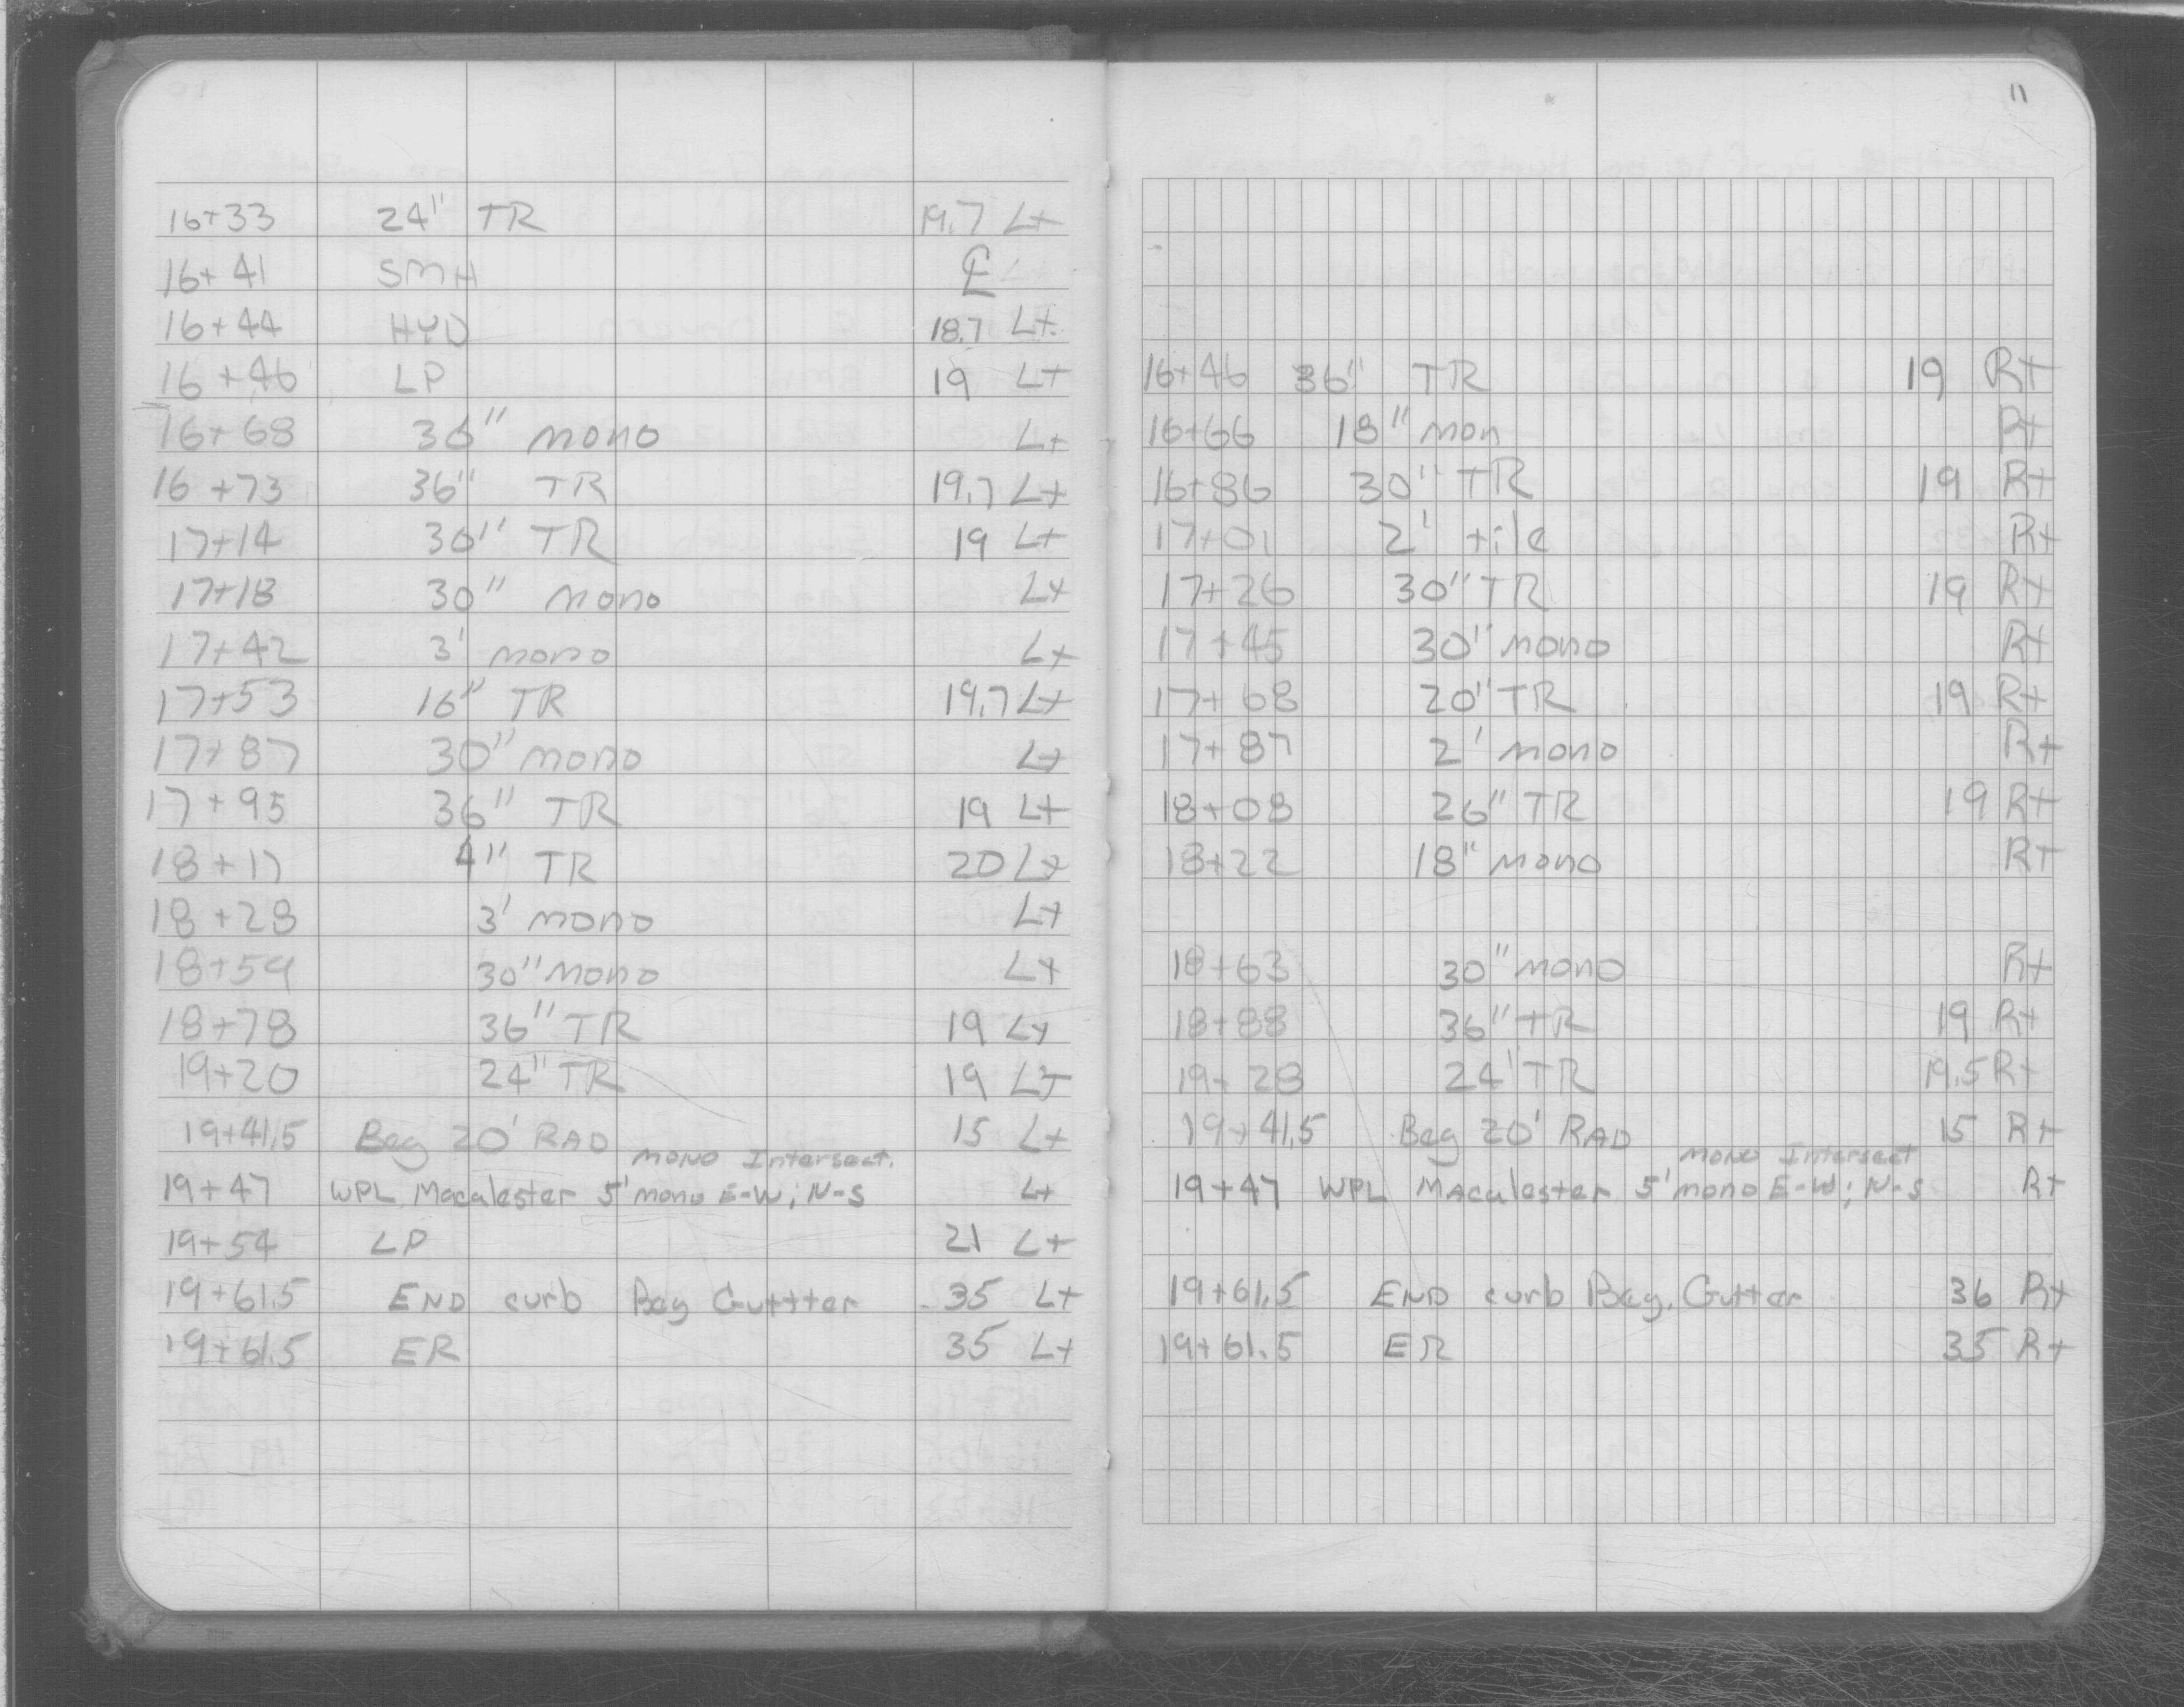 16+33 24" TR 19.7 Lt
16+41 SMH ℄
16+44 HYD 18.7 Lt.
16+46 LP 19 Lt
16+68 36" mono Lt
16+73 36" TR 19.7 Lt
17+14 30" TR 19 Lt
17+18 30" mono Lt
17+42 3' mono Lt
17+53 16" TR 19.7 Lt
17+87 30" mono Lt
17+95 36" TR 19 Lt
18+17 4" TR 20 Lt
18+28 3' mono Lt
18+59 30" mono Lt
18+78 36" TR 19 Lt
19+20 24" TR 19 LT
19+41.5 Beg 20' RAD 15 Lt
mono Intersect.
19+47 WPL Macalester 5' mono E-W; N-S Lt
19+54 LP 21 Lt
19+61.5 END curb Beg Guttter 35 Lt
19+61.5 ER 35 Lt
11
16+46 36" TR 19 Rt
16+66 18" mon Rt
16+86 30" TR 19 Rt
17+01 2' tile Rt
17+26 30" TR 19 Rt
17+45 30" mono Rt
17+68 20" TR 19 Rt
17+87 2' mono Rt
18+08 26" TR 19 Rt
18+22 18" mono RT
18+63 30" mono Rt
18+88 36" TR 19 Rt
19+28 24" TR 19.5 Rt
19+41.5 Beg 20' RAD 15 Rt
mono Intersect
19+47 WPL Macalester 5' mono E-W; N-S Rt
19+61.5 END curb Beg. Gutter 36 Rt
19+61.5 ER 35 Rt